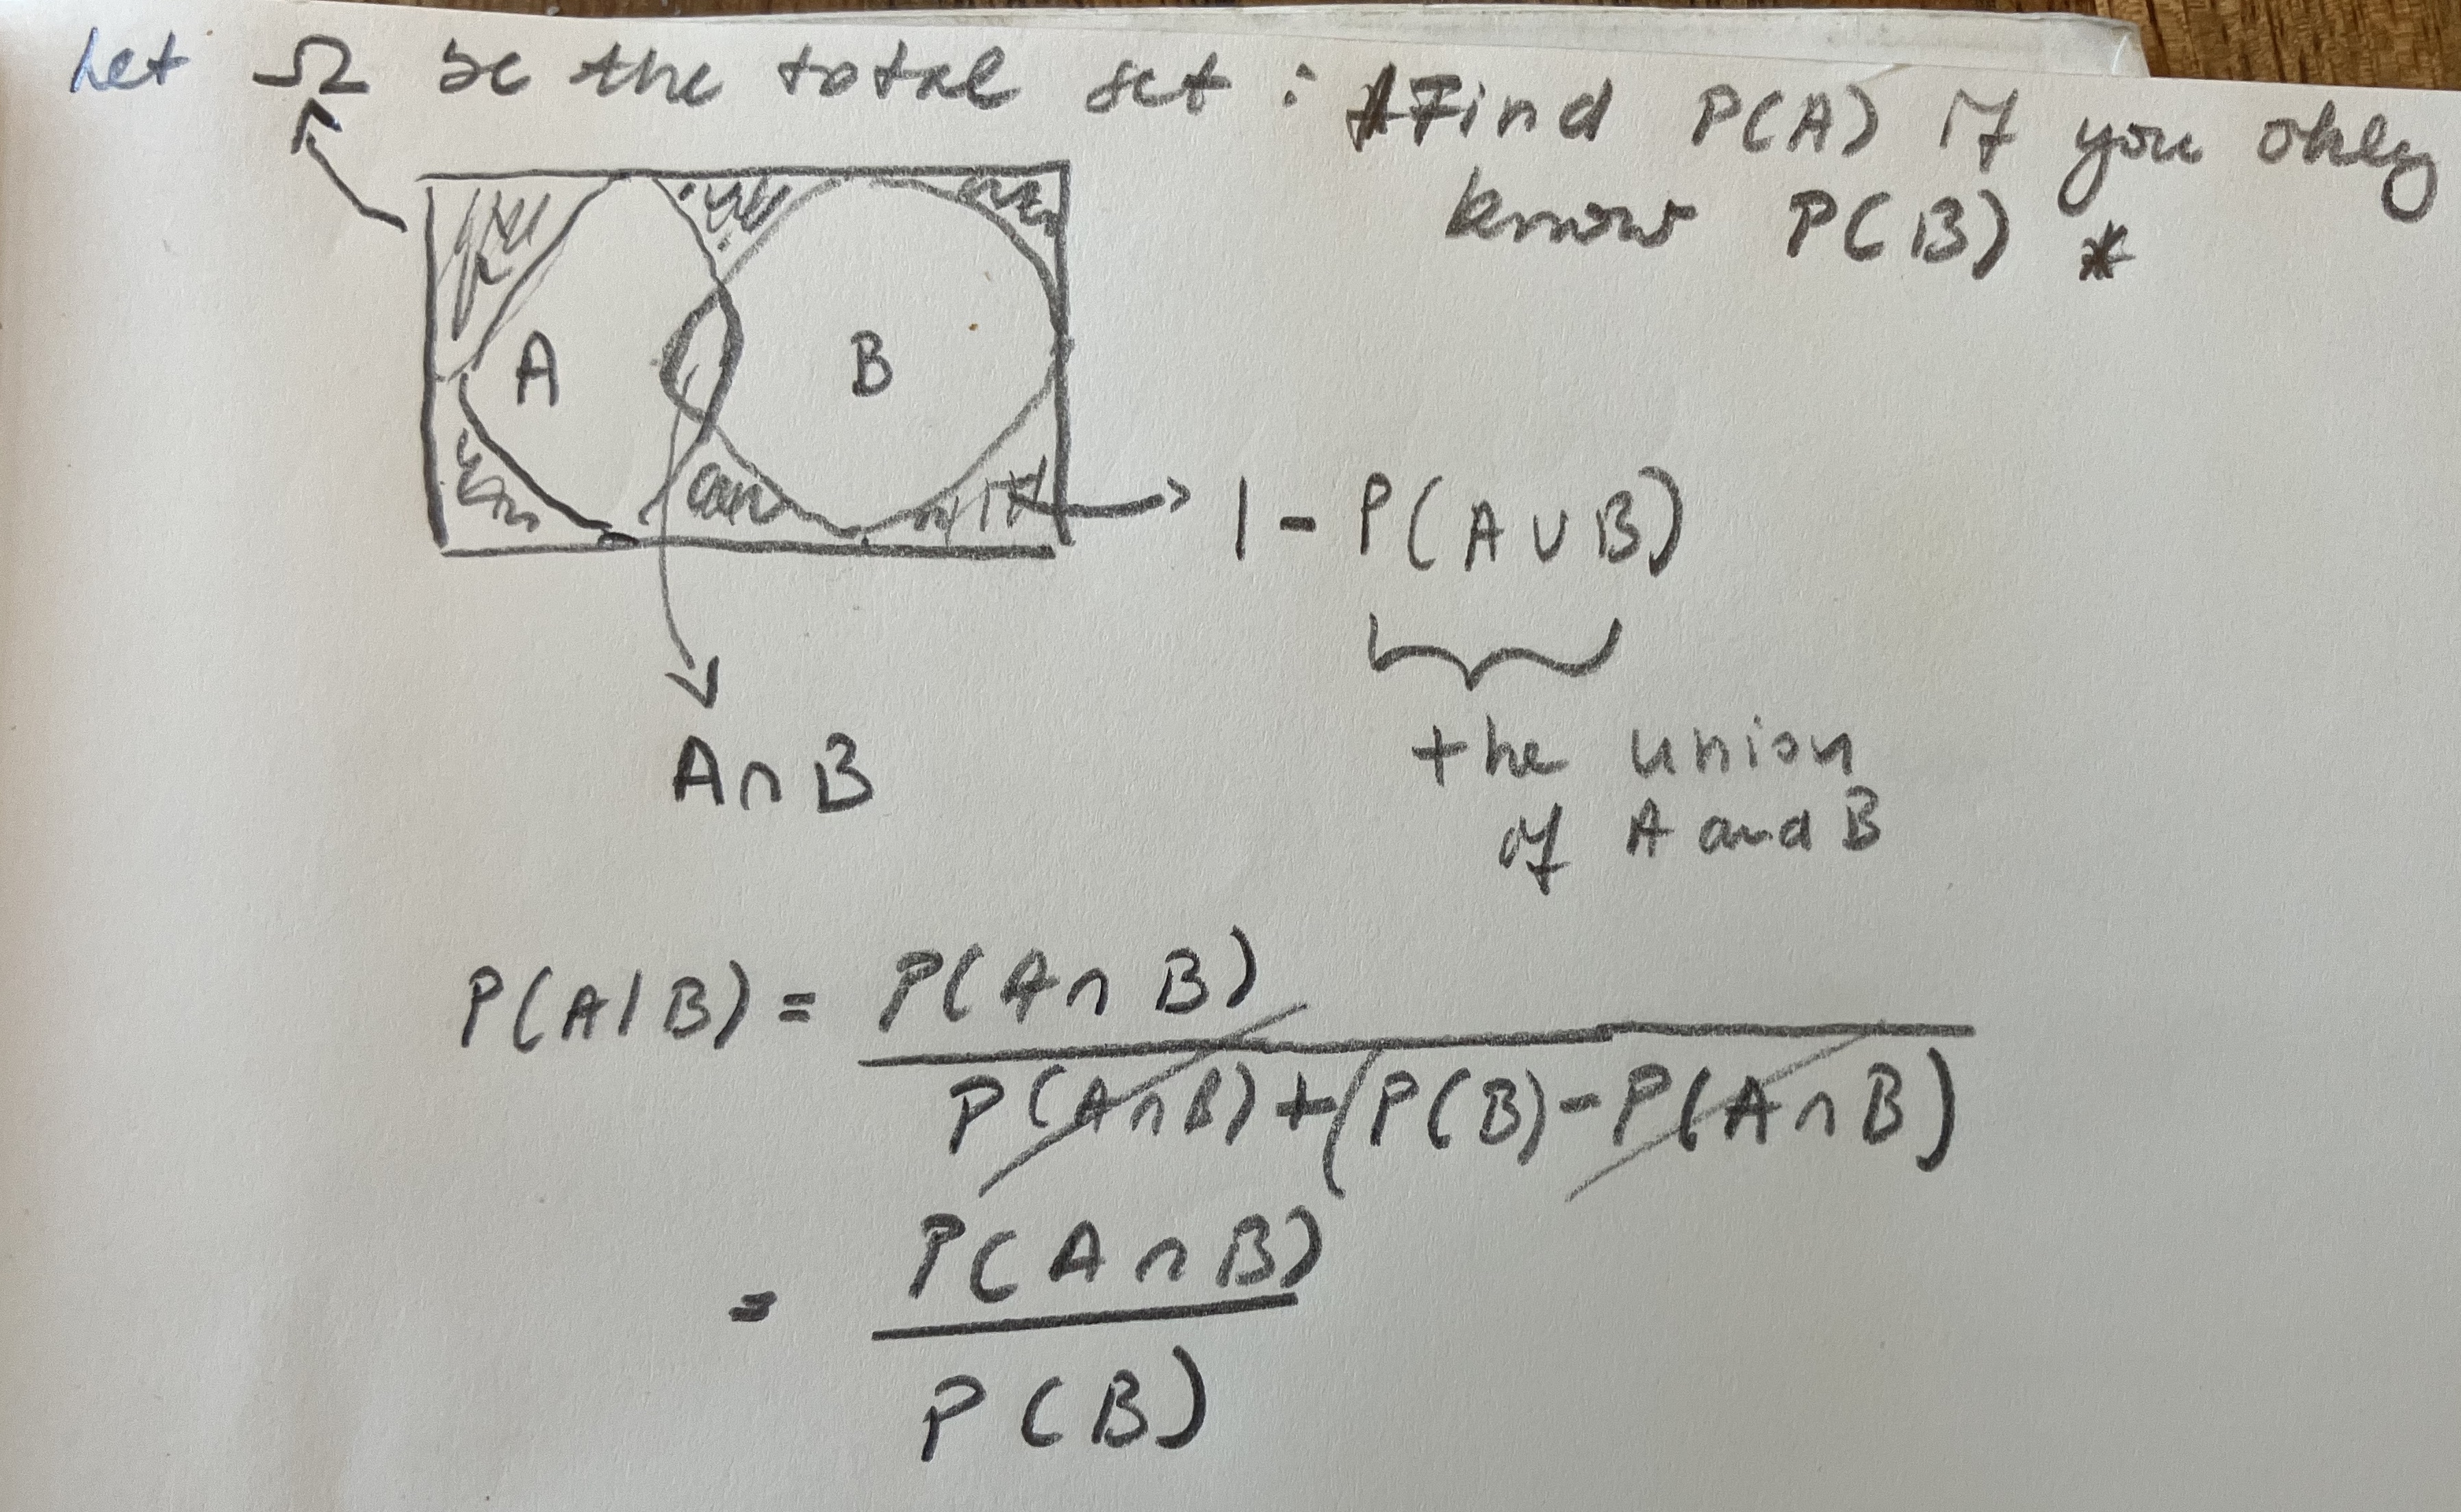 Let Ω be the total set : *Find P(A) if you only
know P(B) *
A B
1 - P(A∪B)
the union
of A and B
A∩B
P(A|B) = P(A∩B)
P(A∩B)+(P(B)-P(A∩B)
= P(A∩B)
P(B)